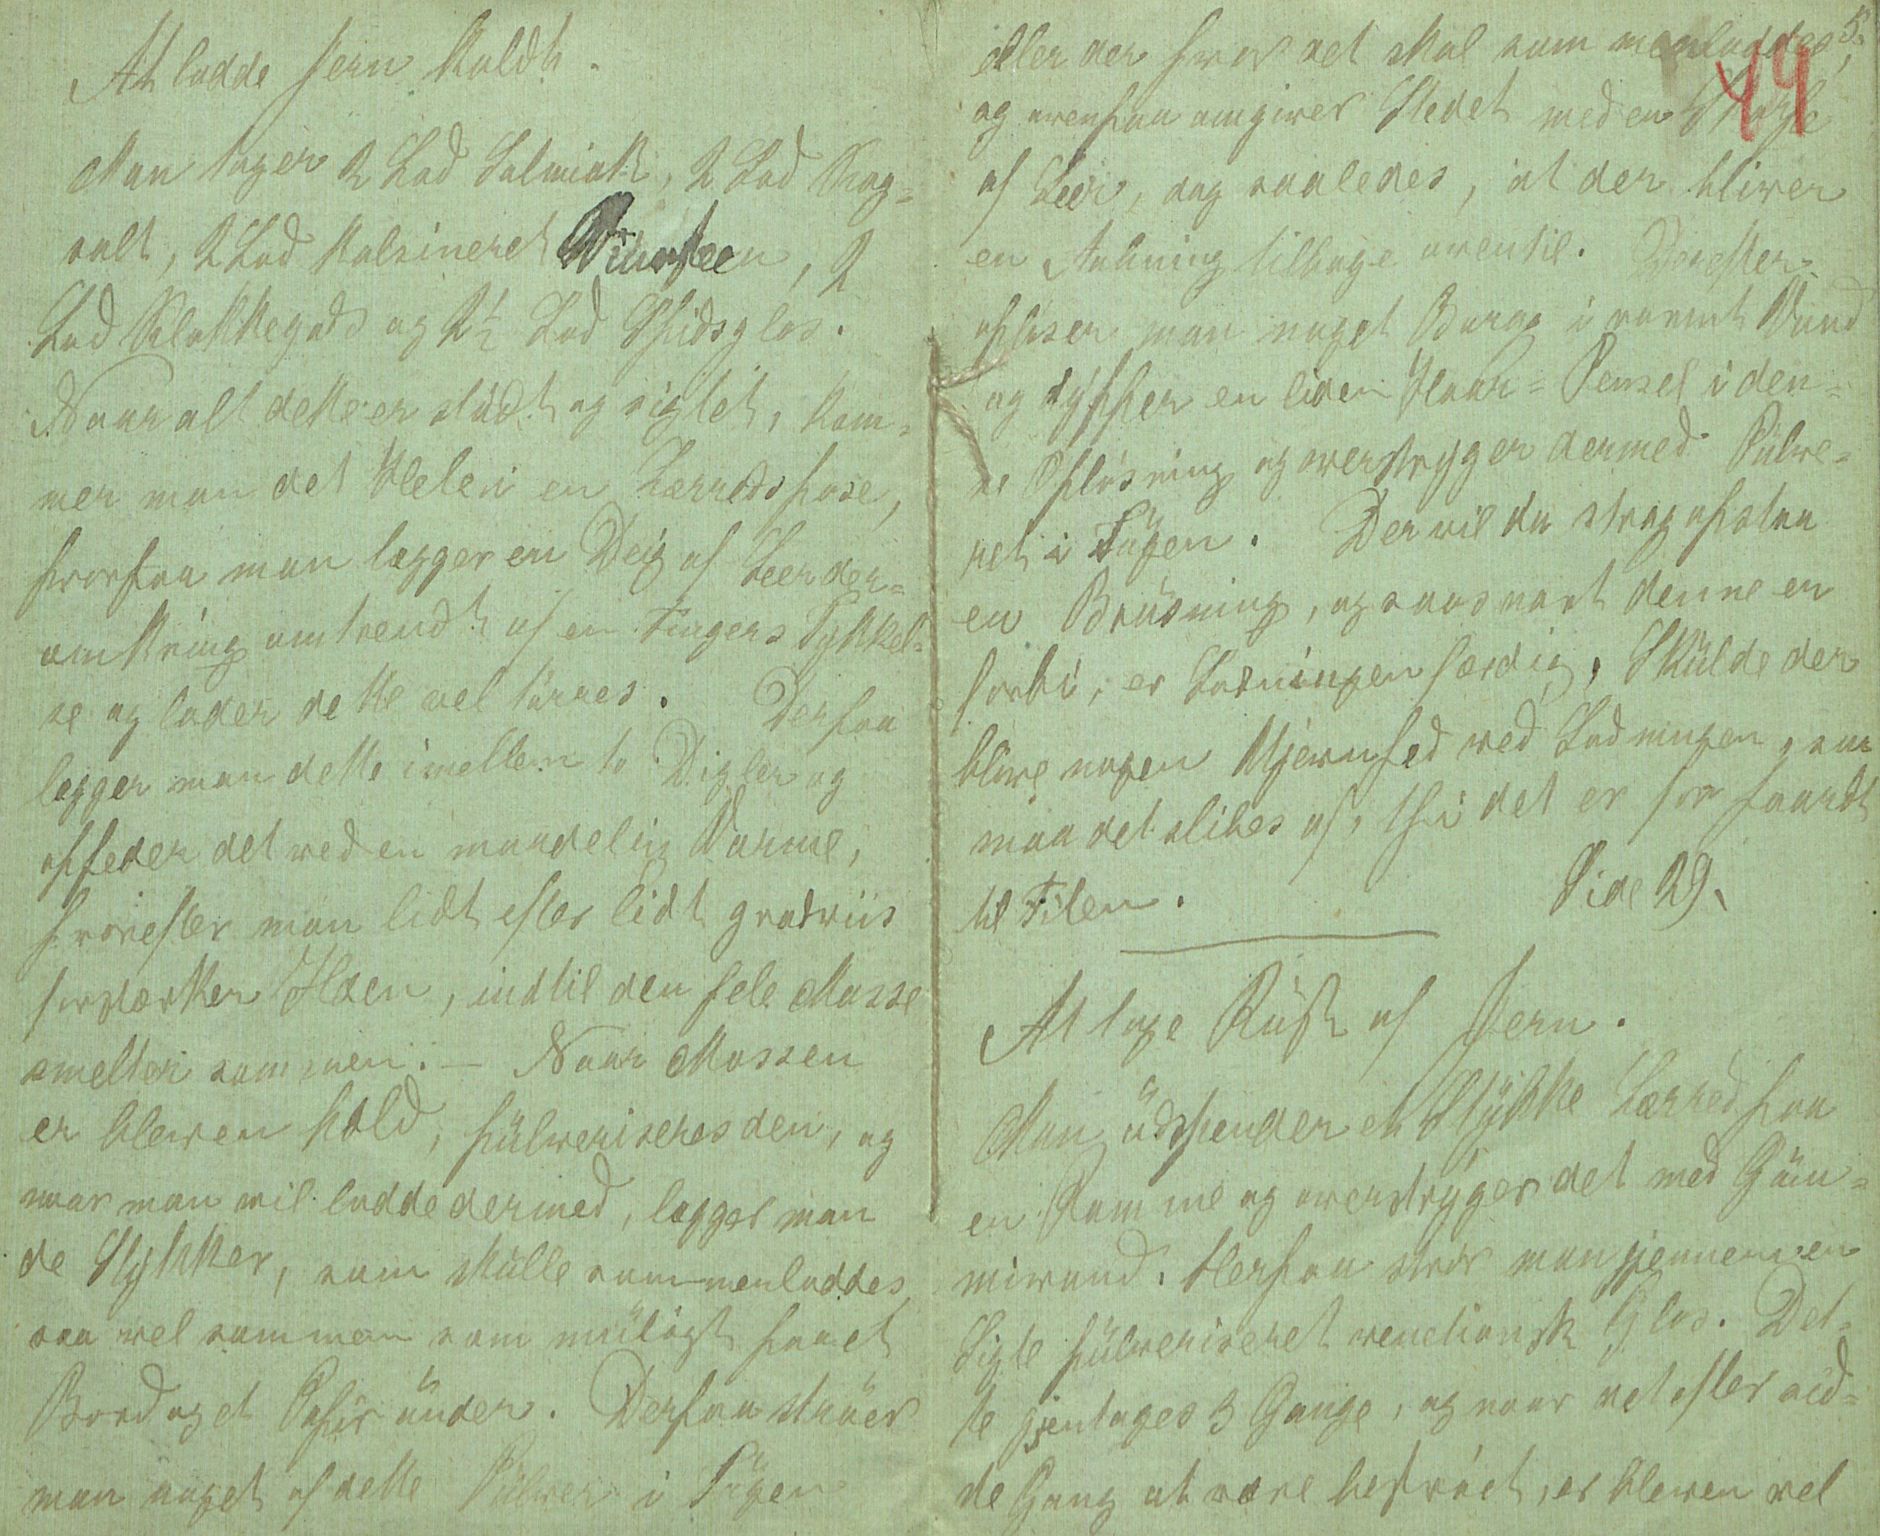 At lodde Jern Koldt.
Man tager 2 Lod Salmiak, 2 Lod Kog=
salt, 2 Lod Kalsineret Viinsteen, 2
Lod Klokkegods og 2½ Lod Spidsglas.
Naar alt dette er stødt og sigtet, kom=
mer man det Hele i en Lærredspose,
hvorpaa man lægger en Deig af Leer der=
omkring omtrendt af en Fingers Tykkel=
se og lader dette vel tørres. Derpaa
lægger man dette imellem to Digler og
opheder det ved en maadelig Varme,
hvorefter man lidt efter lidt gradviis
forstærker Ilden, indtil den hele Masse
smelter sammen. — Naar Massen
er bleven kold, pülveriseres den, og
naar man vil lodde dermed, lægger man
de Stykker, som skülle sammenloddes,
saa vel sammen som müligt paa et
Bord og et Papir ünder. Derpaa strøer
man noget af dette Pülver i Fügen
5.
49
eller der hvor det skal sammenloddes,
og ovenpaa omgiver Stedet med en Skorpe
af Leer, dog saaledes, at der bliver
en Aabning tilbage oventil. Derefter
opløser man noget Borax i varmt Vand
og dypper en liden Haar=Pensel i den=
ne Opløsning og overstryger dermed Pülve=
ret i Fügen. Der vil da strax opstaa
en Brüsning, og saasnart denne er
forbi, er Lodningen færdig. Skülde der
blive nogen Ujevnhed ved Lodningen, saa
maa det slibes af, thi det er for haardt
til Filen. Side 29.
At tage Rüst af Jern.
Man üdspender et Stykke Lærred paa
en Ramme og overstryger det med Güm=
mivand. Herpaa strør man gjennem en
Sigte pülveriseret venetiansk Glas. Det=
te gjentages 3 Gange, og naar det efter sid=
de Gang at være bestrøet, er bleven vel